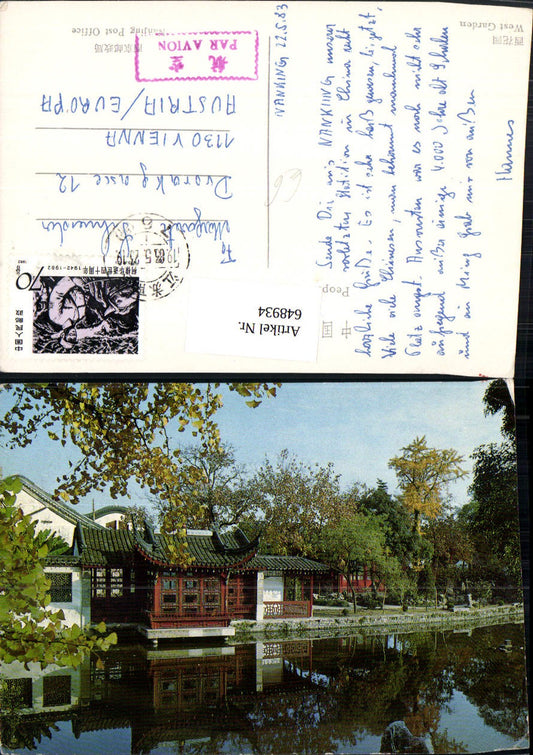 西花园
West Garden
南京邮政局
Nanjing Post Office
航空
PAR AVION
NANKING 22.5.83
Sende Dir aus NANKING unserer
vorletzten Station in China recht
herzliche Grüße. Es ist sehr heiß gewesen, bis jetzt.
Viele viele Chinesen, man bekommt manchmal
Platz angst. Ansonsten war es noch nicht sehr
aufregend außer einige 4.000 Jahre alt
und ein Ming Grab nur von außen
Hannes
To
Margarete
Dvorakgasse 12
1130 VIENNA
AUSTRIA/EUROPA
中国
Peop
70
1942-1982
中国人民邮政
江苏
1983.5.2
Artikel Nr.
648934